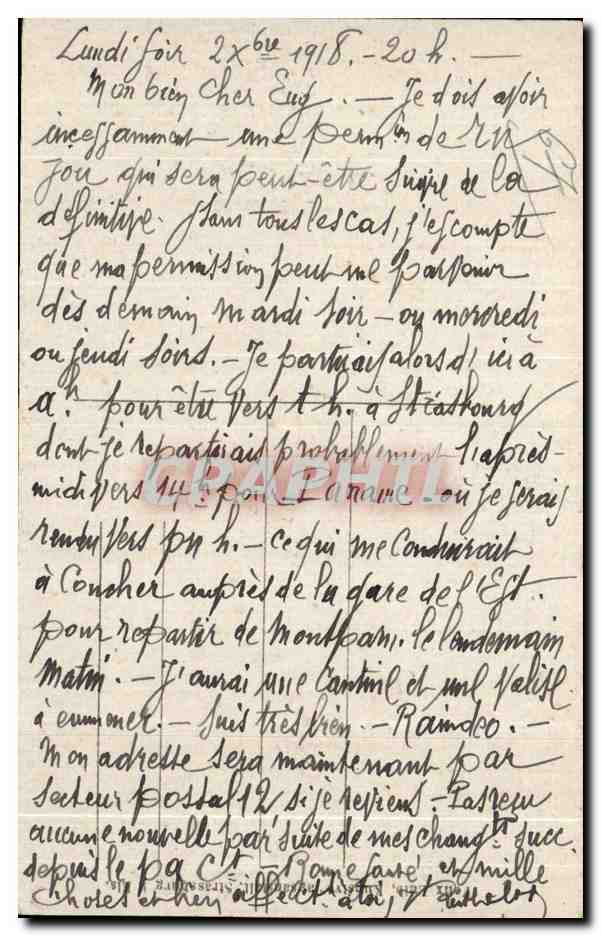 Lundi soir 2 Xbre 1918. - 20 h. -
Mon bien cher Eug. - Je dois avoir
incessamment une permon de
jou qui sera peut-être suivie de la
définitive. Dans tous les cas, j'escompte
que ma permission peut me parvenir
dès demain mardi soir - ou mercredi
ou jeudi soirs. - Je partirais alors d'ici à
pour être vers h. à Strasbourg
dont je repartirais probablement l'après-
midi vers 14 h pour Paname où je serais
rendu vers h. - ce qui me conduirait
à coucher auprès de la gare de l'Est.
pour repartir de Montparn. le lendemain
matin. - J'aurai une cantine et une valise
à emmener. - Suis très bien. - Raindeo. -
Mon adresse sera maintenant par
secteur postal 12, si je reviens. - Pas reçu
aucune nouvelle par suite de mes changts succ.
depuis le Ct. - Bonne santé et mille
choses et bien affect. à toi,
CRAPHIL